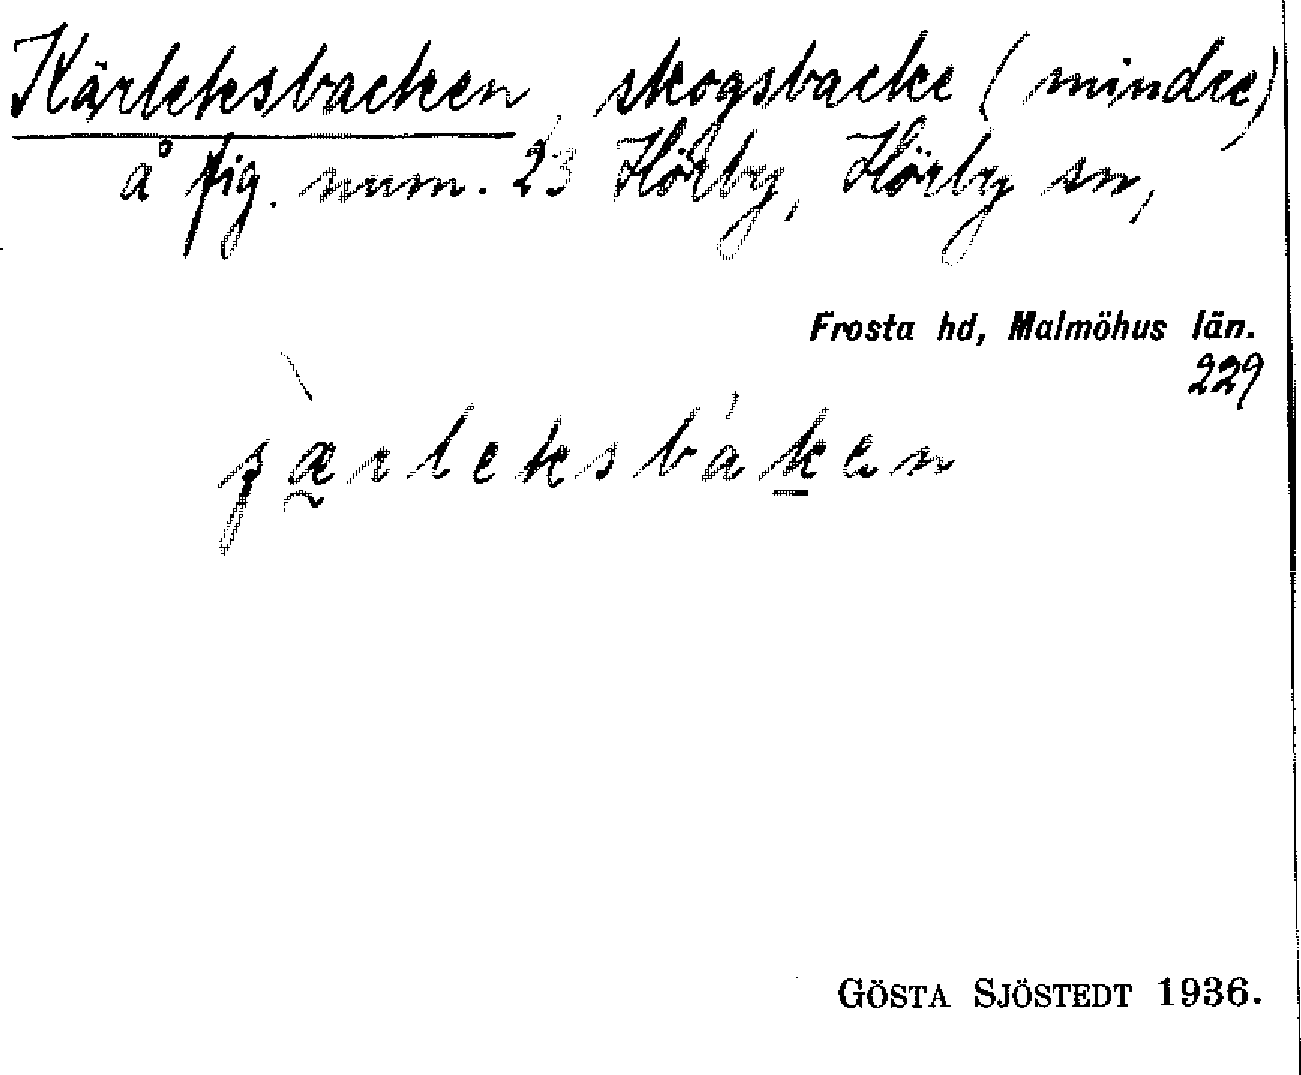 Kärleksbacken, skogsbacke (mindre),
å fig. num. 23 Hörby, Hörby sn,
Frosta hd, Malmöhus län.
229
GÖSTA SJÖSTEDT 1936.